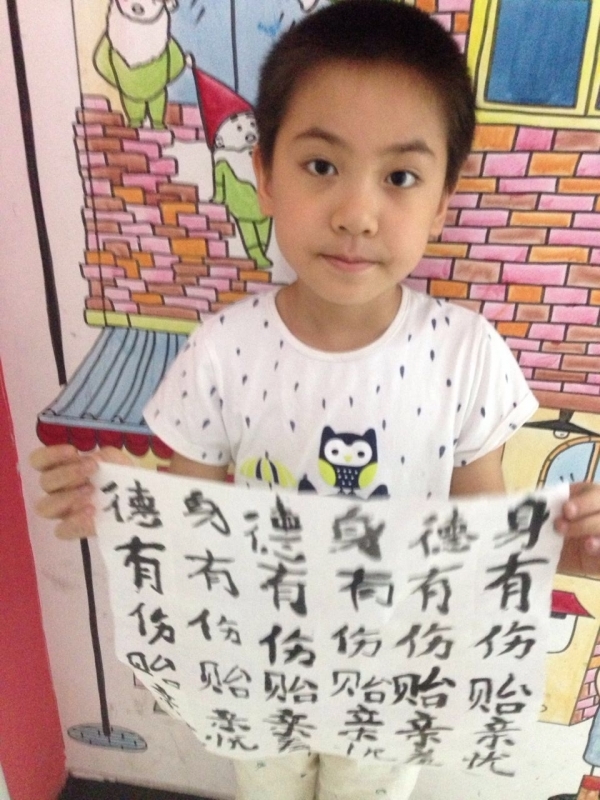 身有伤贻亲忧
德有伤贻亲
身有伤贻亲忧
德有伤贻亲
身有伤贻亲忧
德有伤贻